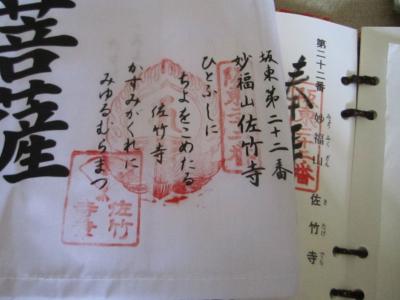 第二十二番
妙福山
佐竹寺
みょうふくざん
さたけでら
奉
坂東第二十二番
妙福山佐竹寺
ひとふしに
ちよをこめたる
佐竹寺
かすみがくれに
みゆるむらまつ
佐竹
菩薩